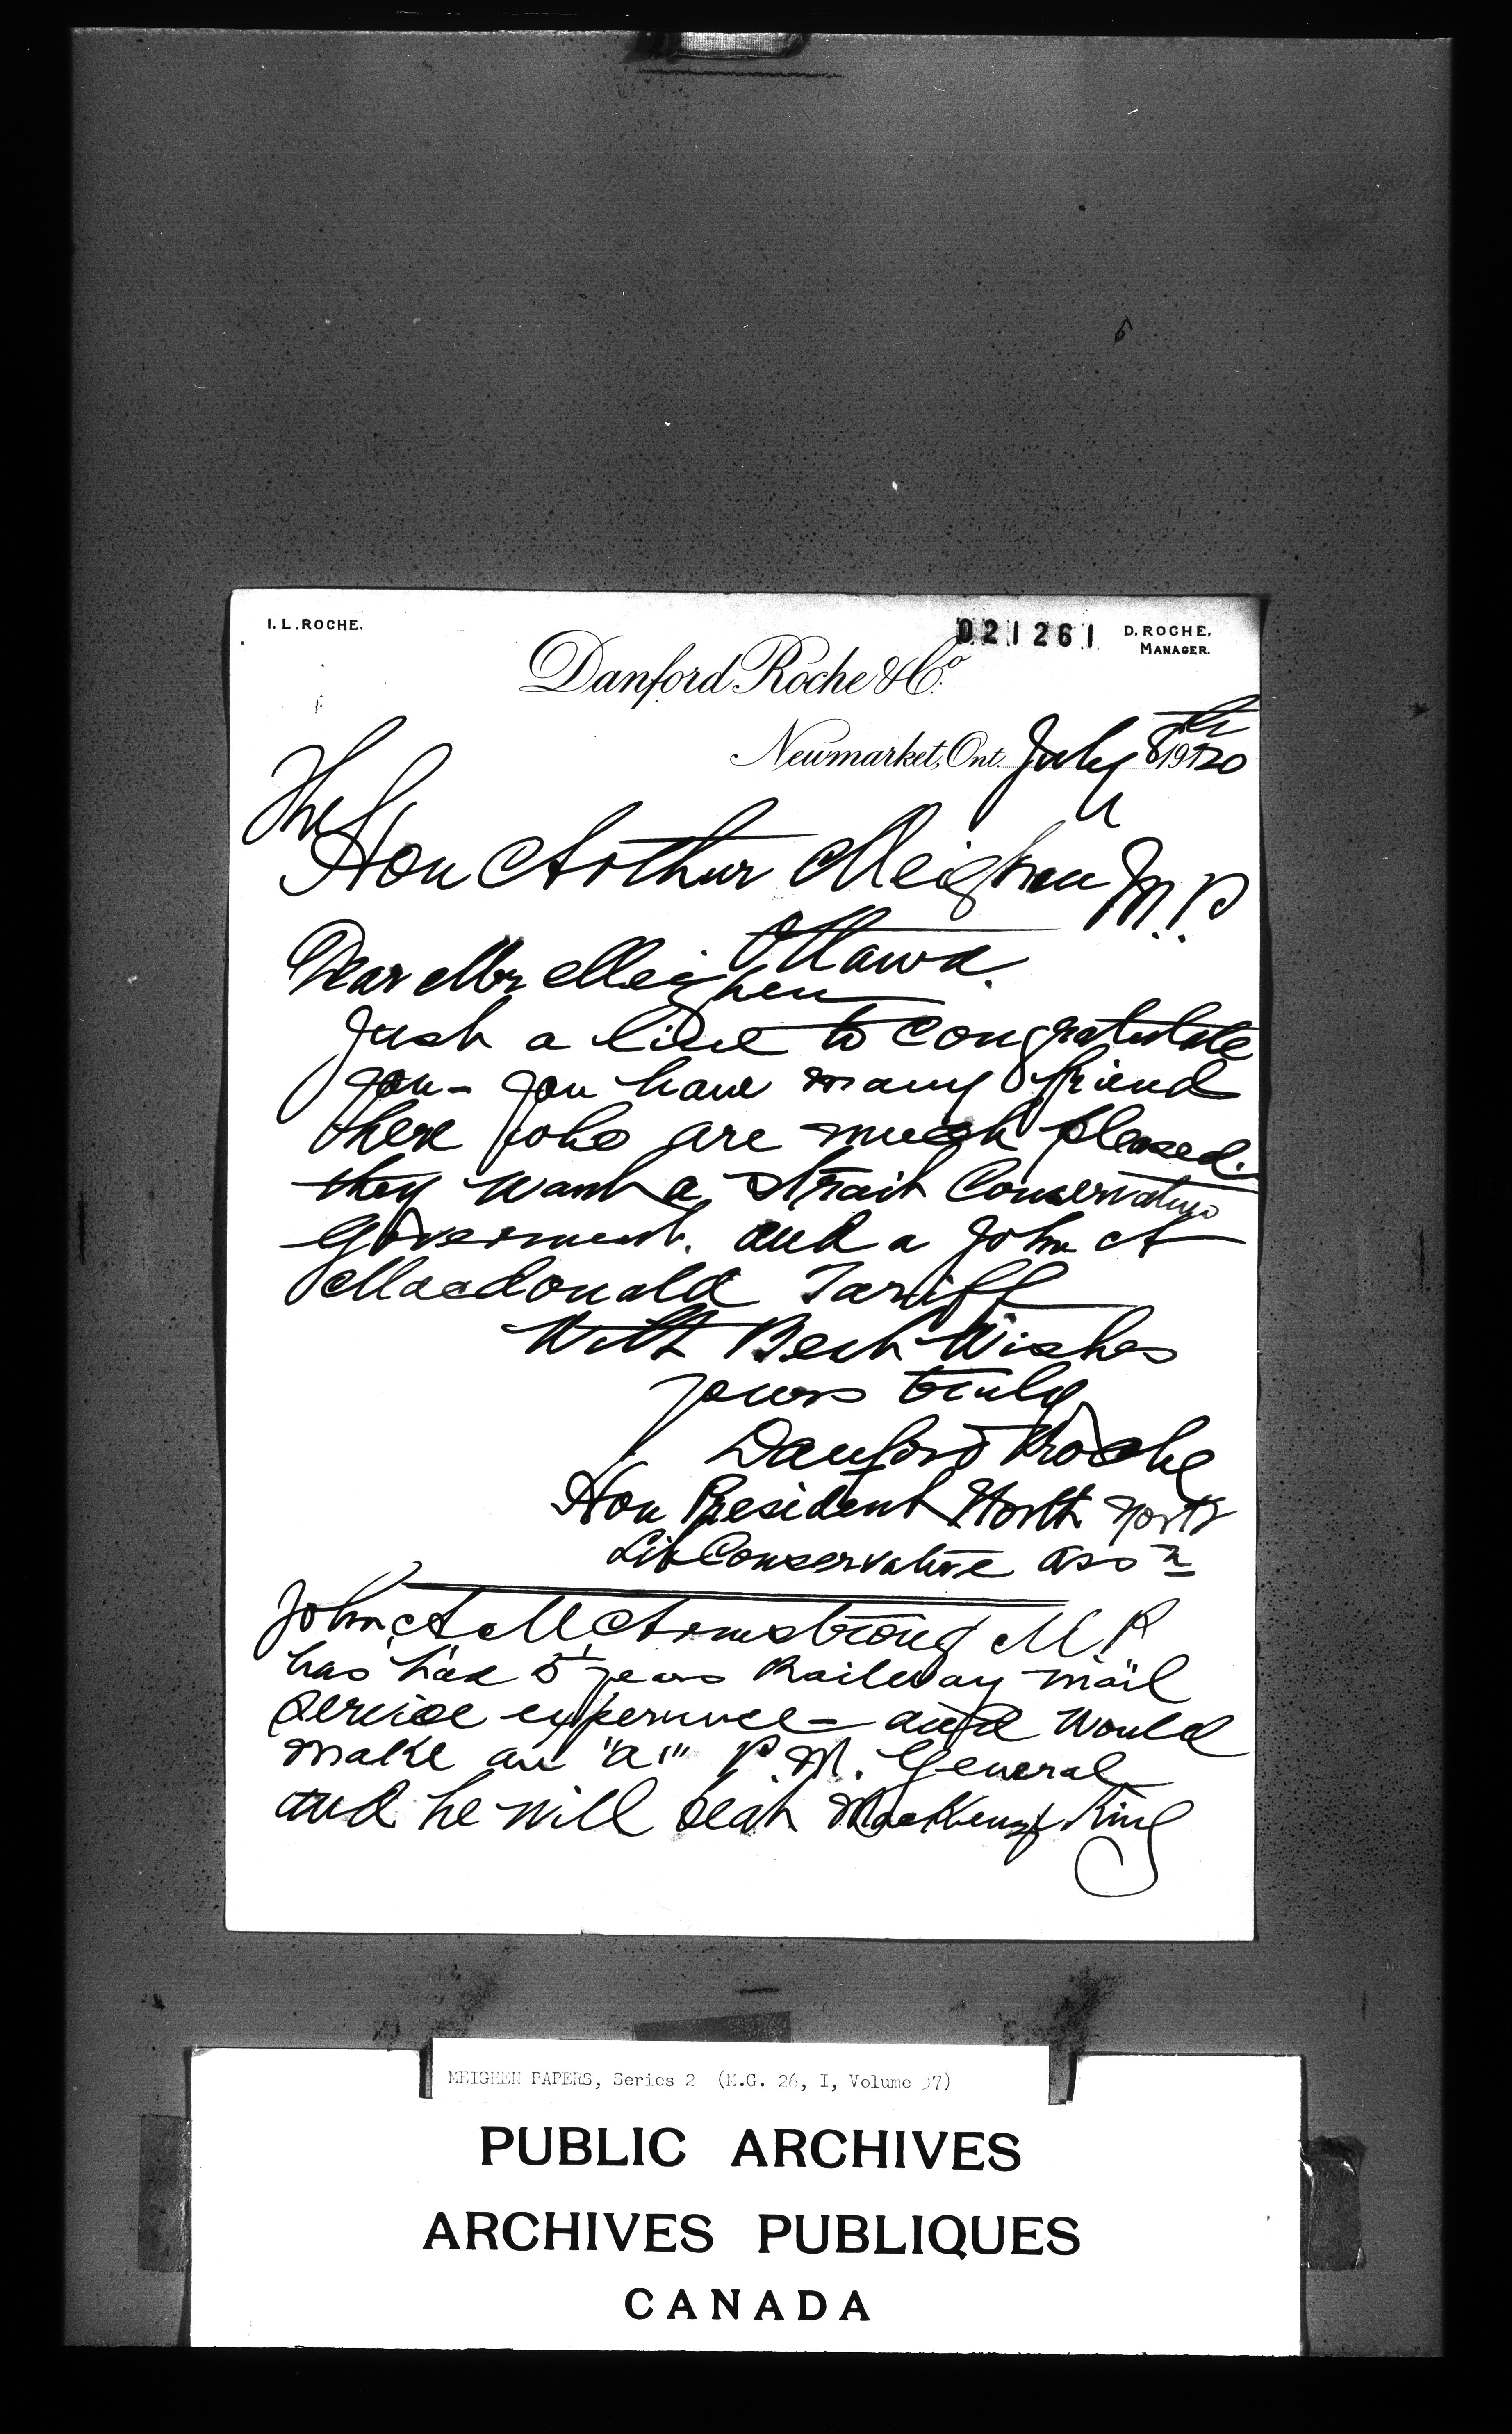 I. L. ROCHE.
021261
D. ROCHE,
MANAGER.
Danford Roche & Co.
Newmarket, Ont. July 8th 1920
The
Hon Arthur Meighen M.P
Ottawa.
Dear Mr Meighen
Just a line to congratulate
you - you have many friend
here who are much pleased.
they want a strait Conservative
Goverment. and a John A
Macdonald Tariff
With Best Wishes
yours truly
Danford Roche
Hon President North York
Lib Conservative Assn
John A M Armstrong M.P.
has had 5 years Railway mail
service experience - and would
make an "a1" P.M. General
and he will beat MacKenzie King
MEIGHEN PAPERS, Series 2 (M.G. 26, I, Volume 37)
PUBLIC ARCHIVES
ARCHIVES PUBLIQUES
CANADA